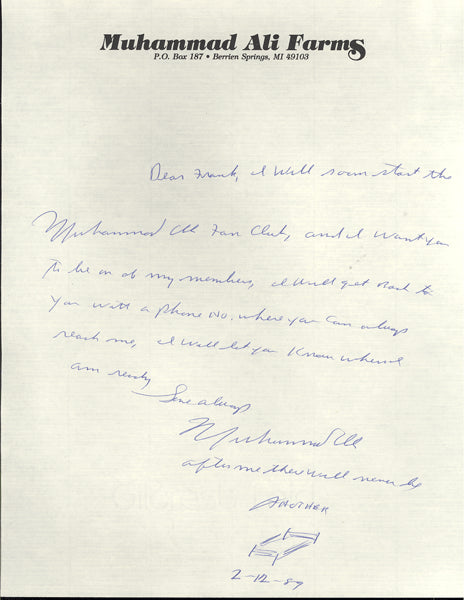 Muhammad Ali Farms
P.O. Box 187 • Berrien Springs, MI 49103
Dear Frank, I Will soon start the
Muhammad Ali Fan Club, and I Want you
to be on of my members, I Will get back to
you with a phone No. where you can always
reach me, I Will let you Know when I
am ready
Love always
Muhammad Ali
after me there will never be
ANOTHER
2-12-89